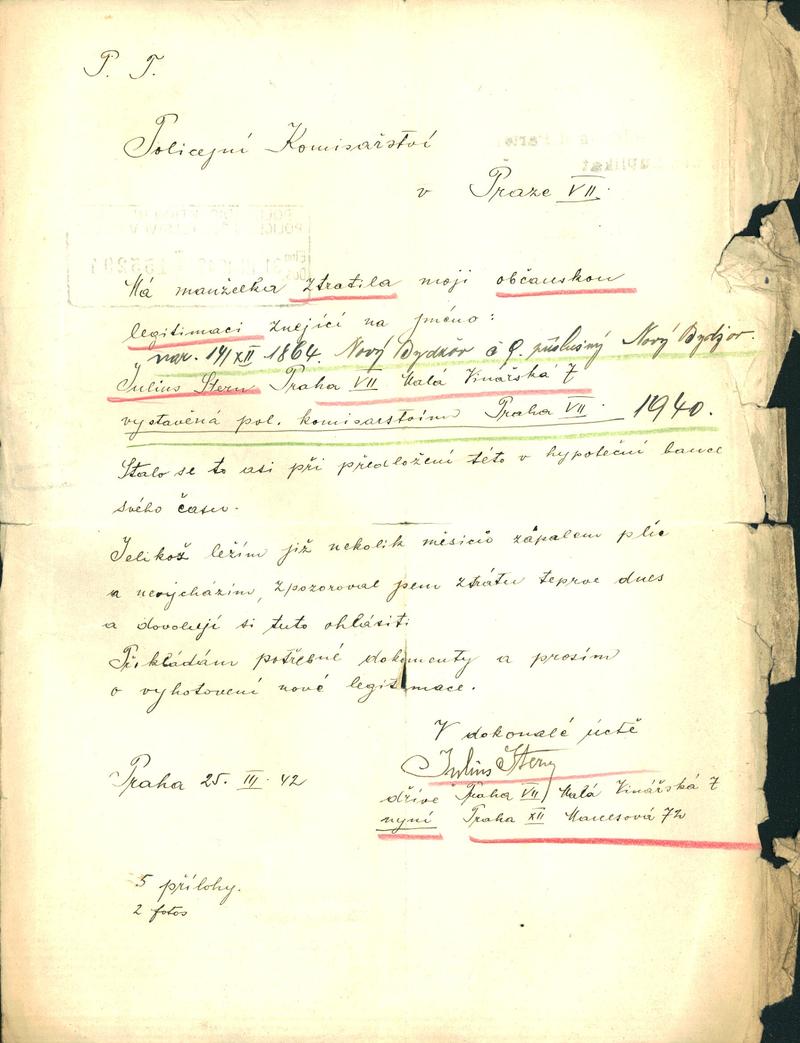 P. T.
Policejní Komisařství
v Praze VII.
Má manželka ztratila moji občanskou
legitimaci znějící na jméno:
nar. 14/XII 1864. Nový Bydžov č 9. příslušný Nový Bydžov.
Julius Stern Praha VII Malá Vinářská 7
vystavěná pol. komisarstvím Praha VII. 1940.
Stalo se to asi při předložení této v hypoteční bance
svého času.
Jelikož ležím již nekolik měsíců zápalem plic
a nevycházím, zpozoroval jsem ztrátu teprve dnes
a dovoluji si tuto ohlásiti.
Přikládám potřebné dokumenty a prosím
o vyhotovení nové legitimace.
V dokonalé úctě
Julius Stern
Praha 25. III. 42
dříve Praha VII Malá Vinářská 7
nyní Praha XII Manesová 72
5 přílohy.
2 fotos